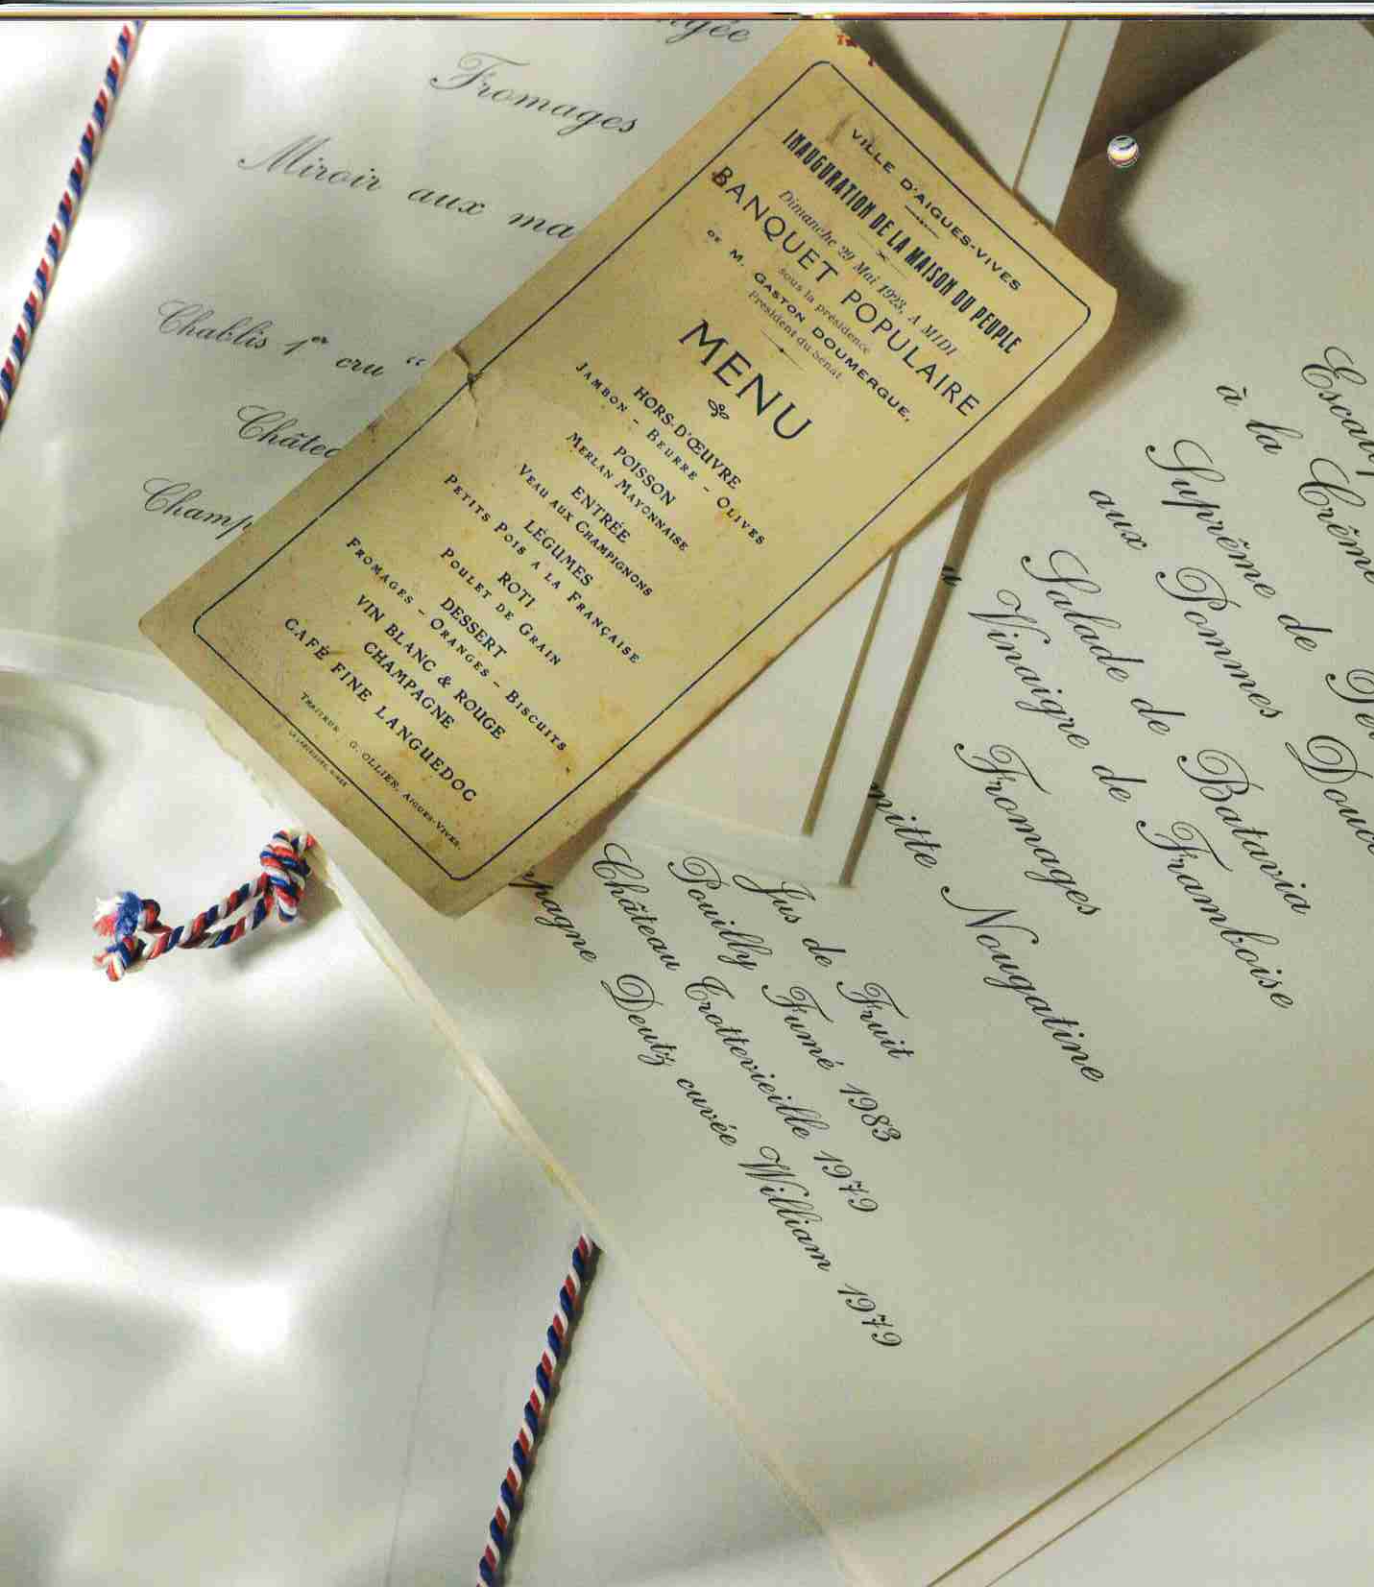 Fromages
Miroir aux ma
Chablis 1er cru "
Château
Champ
VILLE D'AIGUES-VIVES
INAUGURATION DE LA MAISON DU PEUPLE
Dimanche 29 Mai 1923, A MIDI
BANQUET POPULAIRE
sous la présidence
DE M. GASTON DOUMERGUE,
Président du Sénat
MENU
HORS-D'ŒUVRE
JAMBON - BEURRE - OLIVES
POISSON
MERLAN MAYONNAISE
ENTRÉE
VEAU AUX CHAMPIGNONS
LÉGUMES
PETITS POIS A LA FRANÇAISE
ROTI
POULET DE GRAIN
DESSERT
FROMAGES - ORANGES - BISCUITS
VIN BLANC & ROUGE
CHAMPAGNE
CAFÉ FINE LANGUEDOC
TRAITEUR G. OLLIER, AIGUES-VIVES.
à la Crème
Suprême de
aux Pommes
Salade de Batavia
Vinaigre de Framboise
Fromages
mitte Nougatine
Jus de Fruit
Pouilly Fumé 1983
Château Trottevieille 1979
pagne Deutz cuvée William 1979